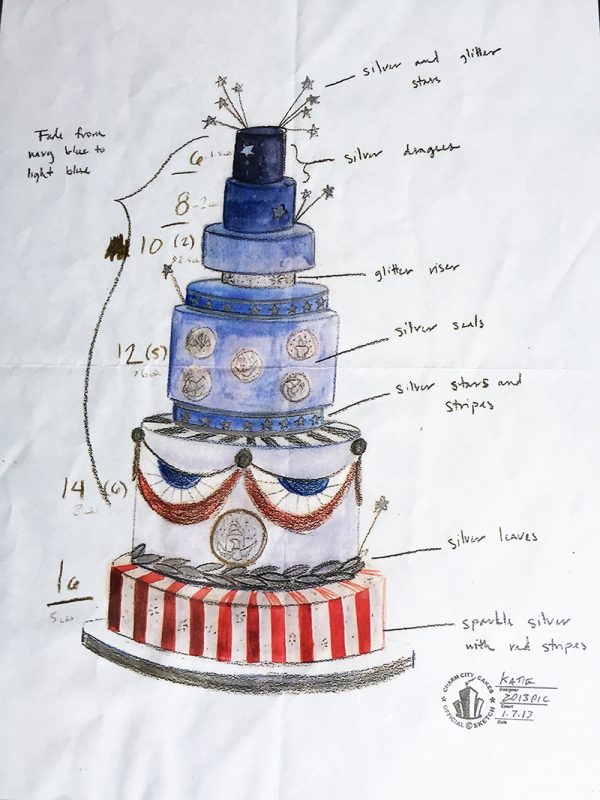 silver and glitter
stars
Fade from
navy blue to
light blue
6
silver dragees
8
10 (2)
glitter riser
12 (5)
silver seals
silver stars and
stripes
14 (6)
silver leaves
16
sparkle silver
with red stripes
CHARM CITY CAKES
OFFICIAL © SKETCH
KATIE
Designer
2013PIC
Event
1.7.13
Date